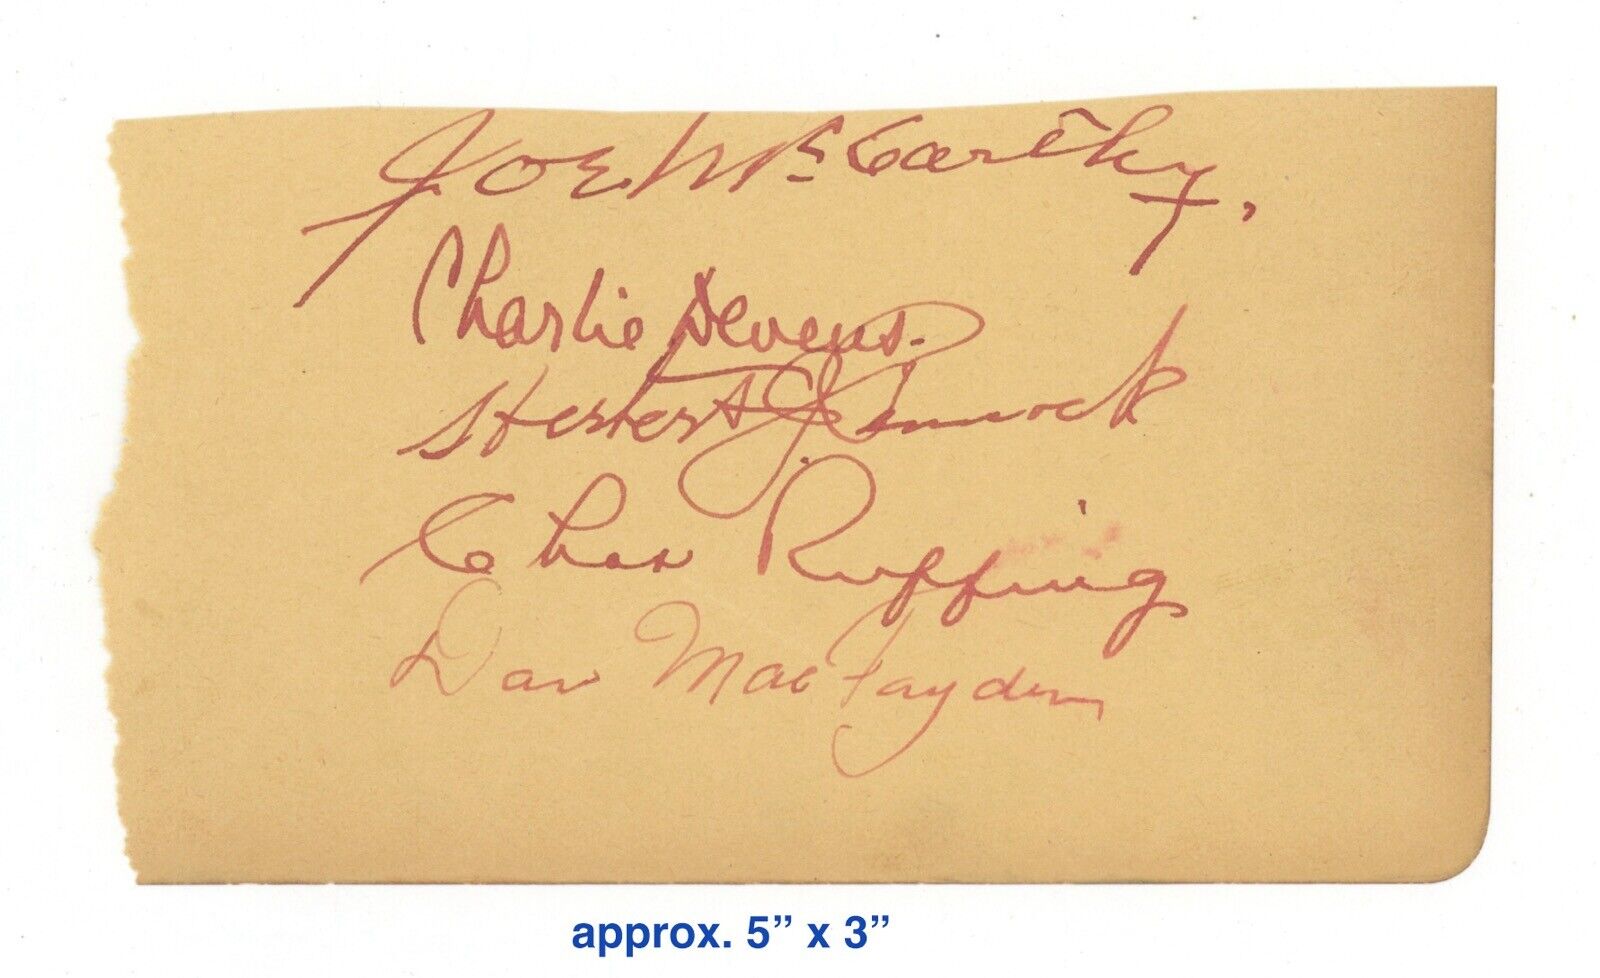 Joe McCarthy,
Charlie Devens.
Herbert J. Pennock
Chas Ruffing
Dan MacFayden
approx. 5” x 3”